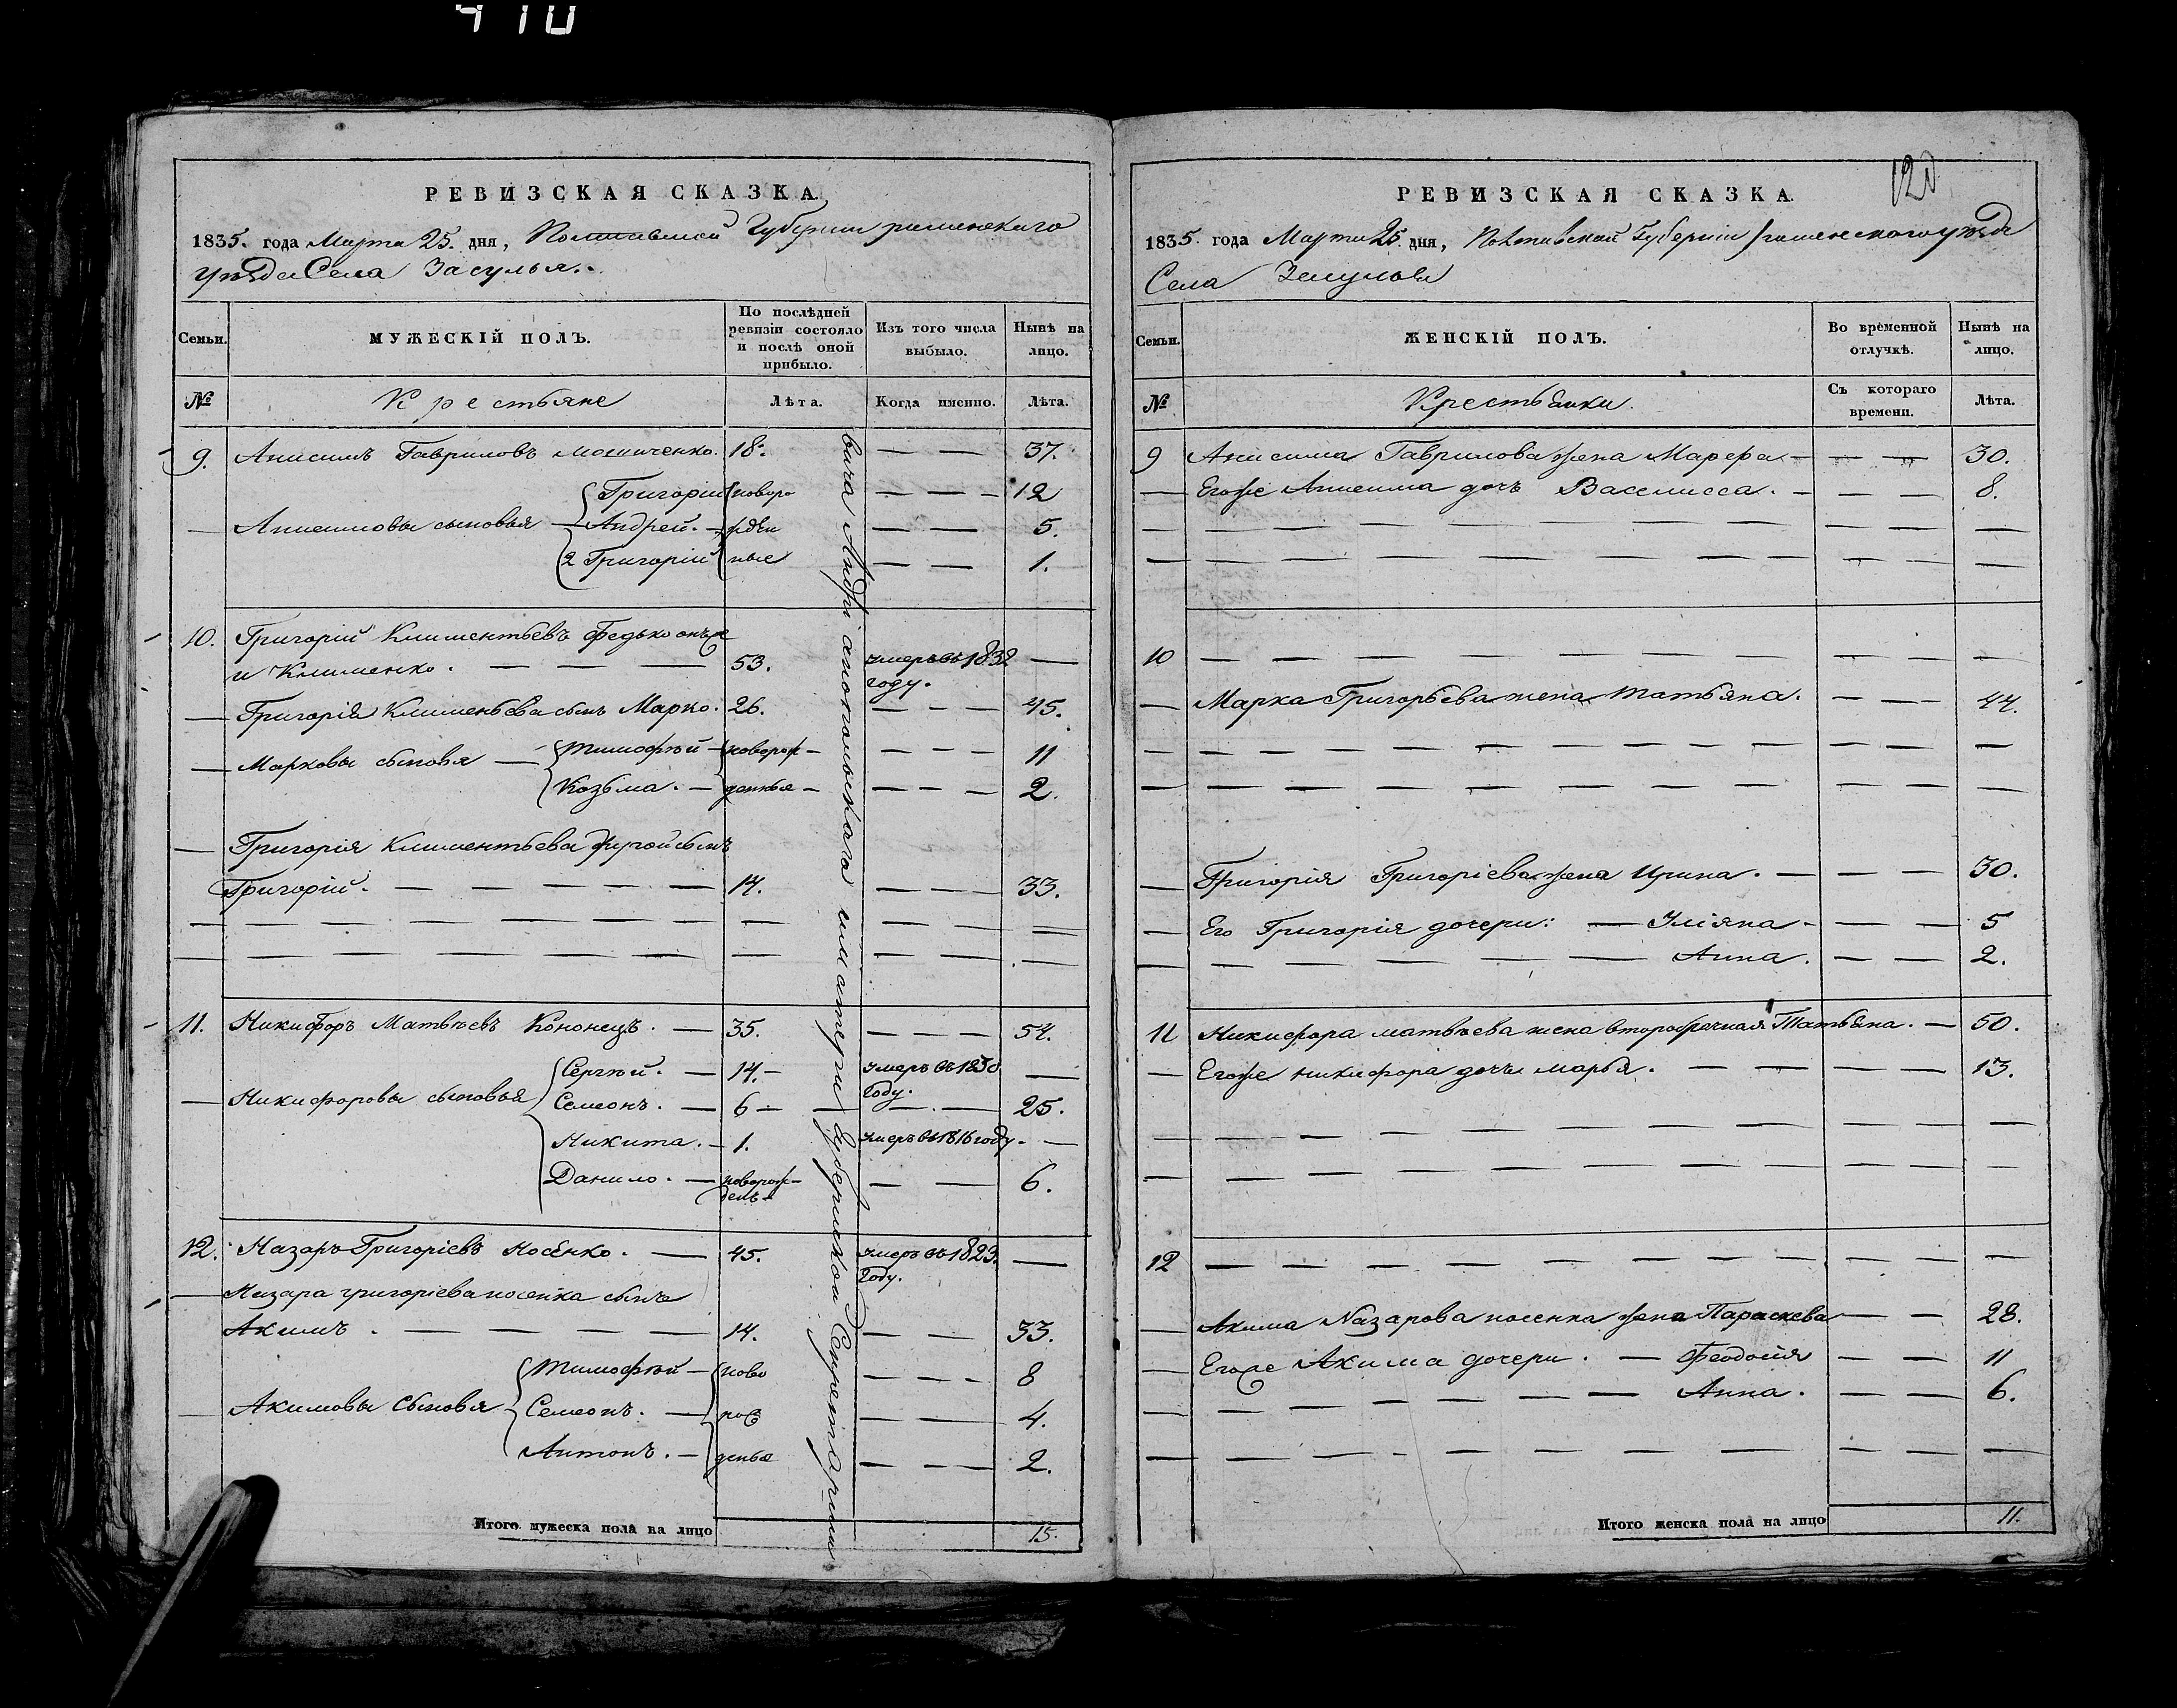 410
РЕВИЗСКАЯ СКАЗКА.
1835. года Марта 25. дня, Полтавской Губернии роменского
уѣзда Села Засулья.
Семьи.
МУЖЕСКІЙ ПОЛЪ.
По послѣдней ревизіи состояло и послѣ оной прибыло.
Изъ того числа выбыло.
Нынѣ на лицо.
№
Крестьяне
Лѣта.
Когда именно.
Лѣта.
9. Анисимъ Гавриловъ 18. — — 37.
Григорій новоро — — — 12
— Анисимовы сыновья — Андрей. — ждѣн — — 5.
2 Григорій ные — — 1.
10. Григорій Климентьевъ Федько онъже
и Клименко. — — — 53. умеръ въ 1832 —
году.
— Григорія Клименьева сынъ Марко. 26. — — — 45.
— Марковы сыновя — Тимофѣй — новорож — — — — 11
Козьма. — денные — — — — 2.
— Григорія Климентьева другой сынъ
Григорій. — — — — — 14. — — — 33.
11. Никифоръ Матвѣевъ Кононецъ. — 35. — — — 54.
Сергѣй. — 14. — умеръ въ 1830 —
году.
— Никифоровы сыновья Семенъ. — 6 — — — — 25.
Никита. — 1. умеръ въ 1816 году. —
Данило. — новорож- — — 6.
денъ
12. Назаръ Григоріевъ Носенко. — 45. умеръ въ 1823. —
году.
— Назара григоріева носенка сынъ
Акимъ. — — — — 14. — — 33.
Тимофѣй — ново — — — 8
— Акимовы Сыновя Семенъ. — рож — — — 4.
Антонъ. — денные — — — 2.
Итого мужеска пола на лицо 15.
вича Андріапольскаго и матери губернской Секретарши
120
РЕВИЗСКАЯ СКАЗКА.
1835. года Марта 25. дня, Полтавской Губерніи роменского уѣзда
Села Засулья
Семьи.
ЖЕНСКІЙ ПОЛЪ.
Во временной отлучкѣ.
Нынѣ на лицо.
№
Крестьянки.
Съ котораго времени.
Лѣта.
9 Анисима Гаврилова жена Марфа — — — — 30.
— Егоже Анисима дочь Вассилисса. — — — 8.
10 — — — — — — — — — —
— Марка Григорьева жена Татьяна. — — — 44.
— Григорія Григоріева жена Ирина. — — — — 30.
— Его Григорія дочери: — Уліяна — — — — 5
— — — — — — Анна. — — — 2.
11 Никифора матвѣева жена второбрачная Татьяна. — 50.
— Егоже никифора дочь марья. — — — — — 13.
12 — — — — — — — — — —
— Акима Назарова носенка жена Параскева — — 28.
— Егоже Акима дочери. — Феодосія — — 11
— — — — — — Анна. — — 6.
Итого женска пола на лицо 11.